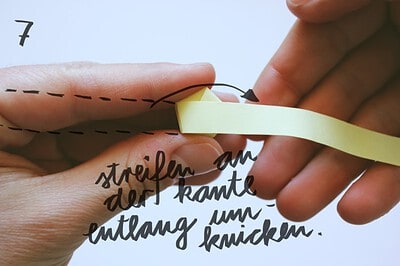 7
streifen an
der kante
entlang um-
knicken.